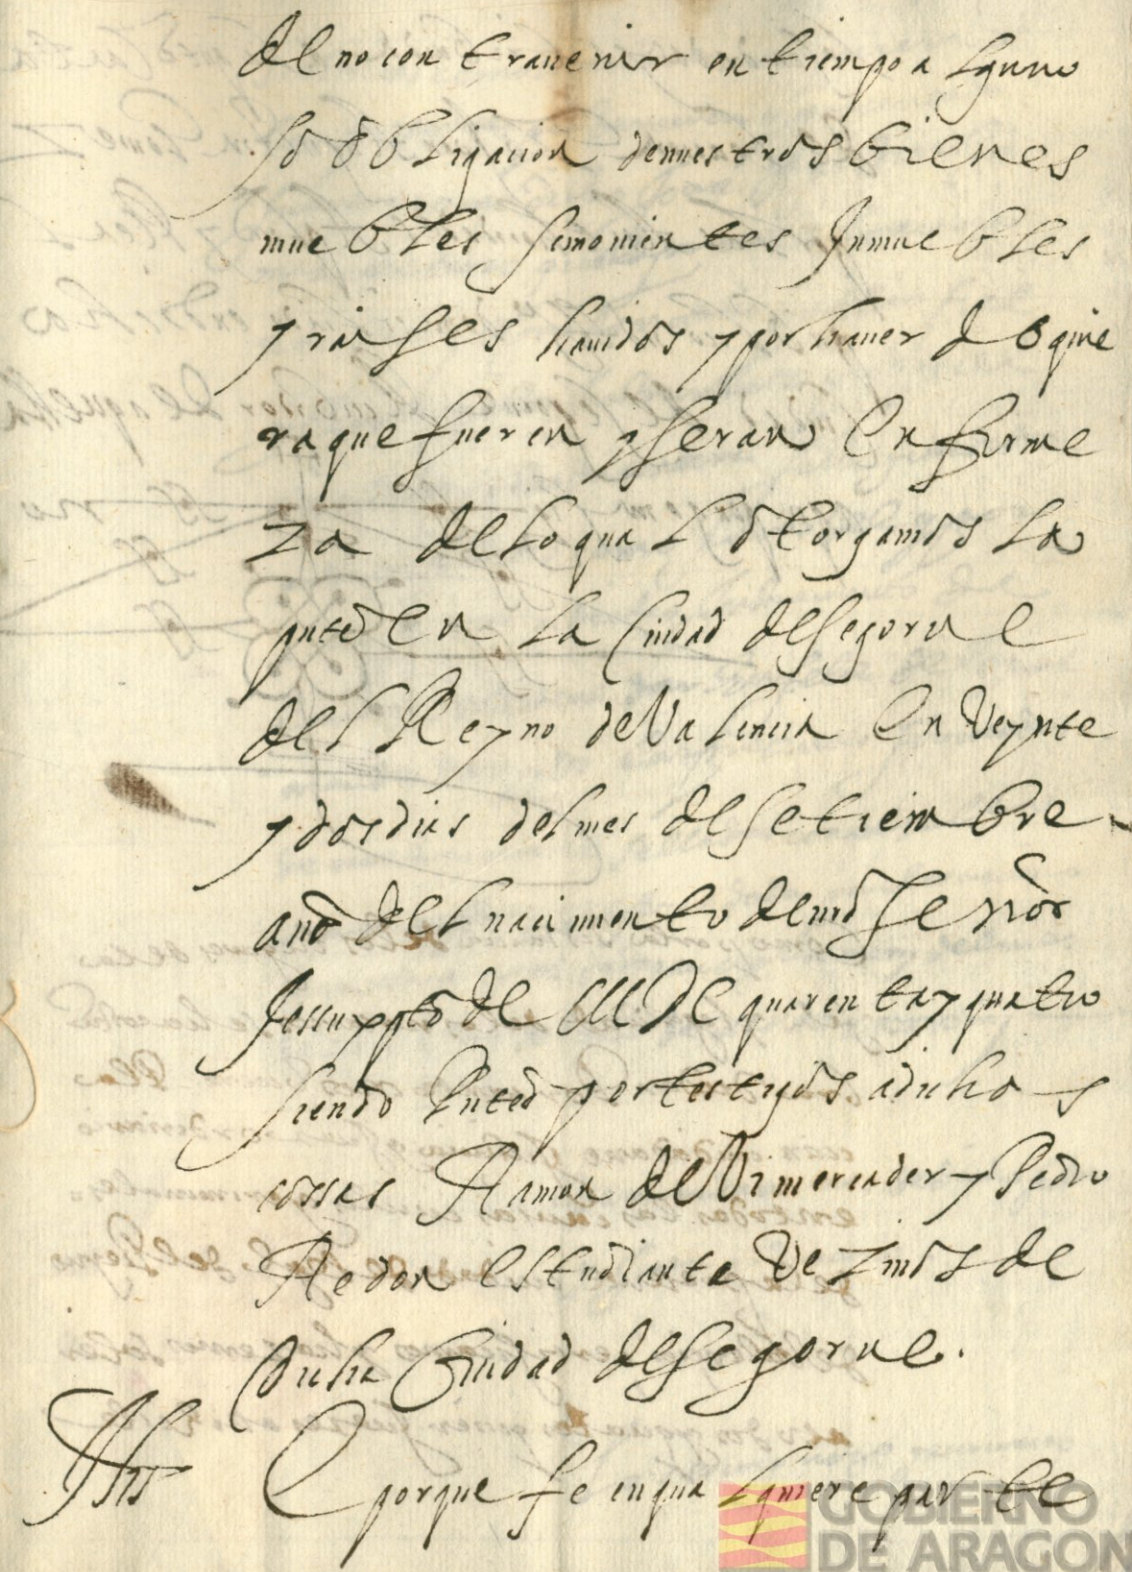 de no contravenir en tiempo alguno
so obligacion de nuestros bienes
muebles semovientes Inmuebles
y raises havidos y por haver do quie
ra que fueren y seran En firme
za de lo qual otorgamos la
pnte En la Ciudad de Segorve
del Reyno de Valencia En Veynte
y dos dias del mes de Setiembre
año del nacimiento de nro Señor
Jesu xpto de MDC quarenta y quatro
siendo Pntes por testigos a dichas
cossas Ramon de Vimercader y Pedro
Redon estudiante Vezinos de
dicha Ciudad de Segorve.
Porque fe en qualquiere parte
GOBIERNO
DE ARAGON